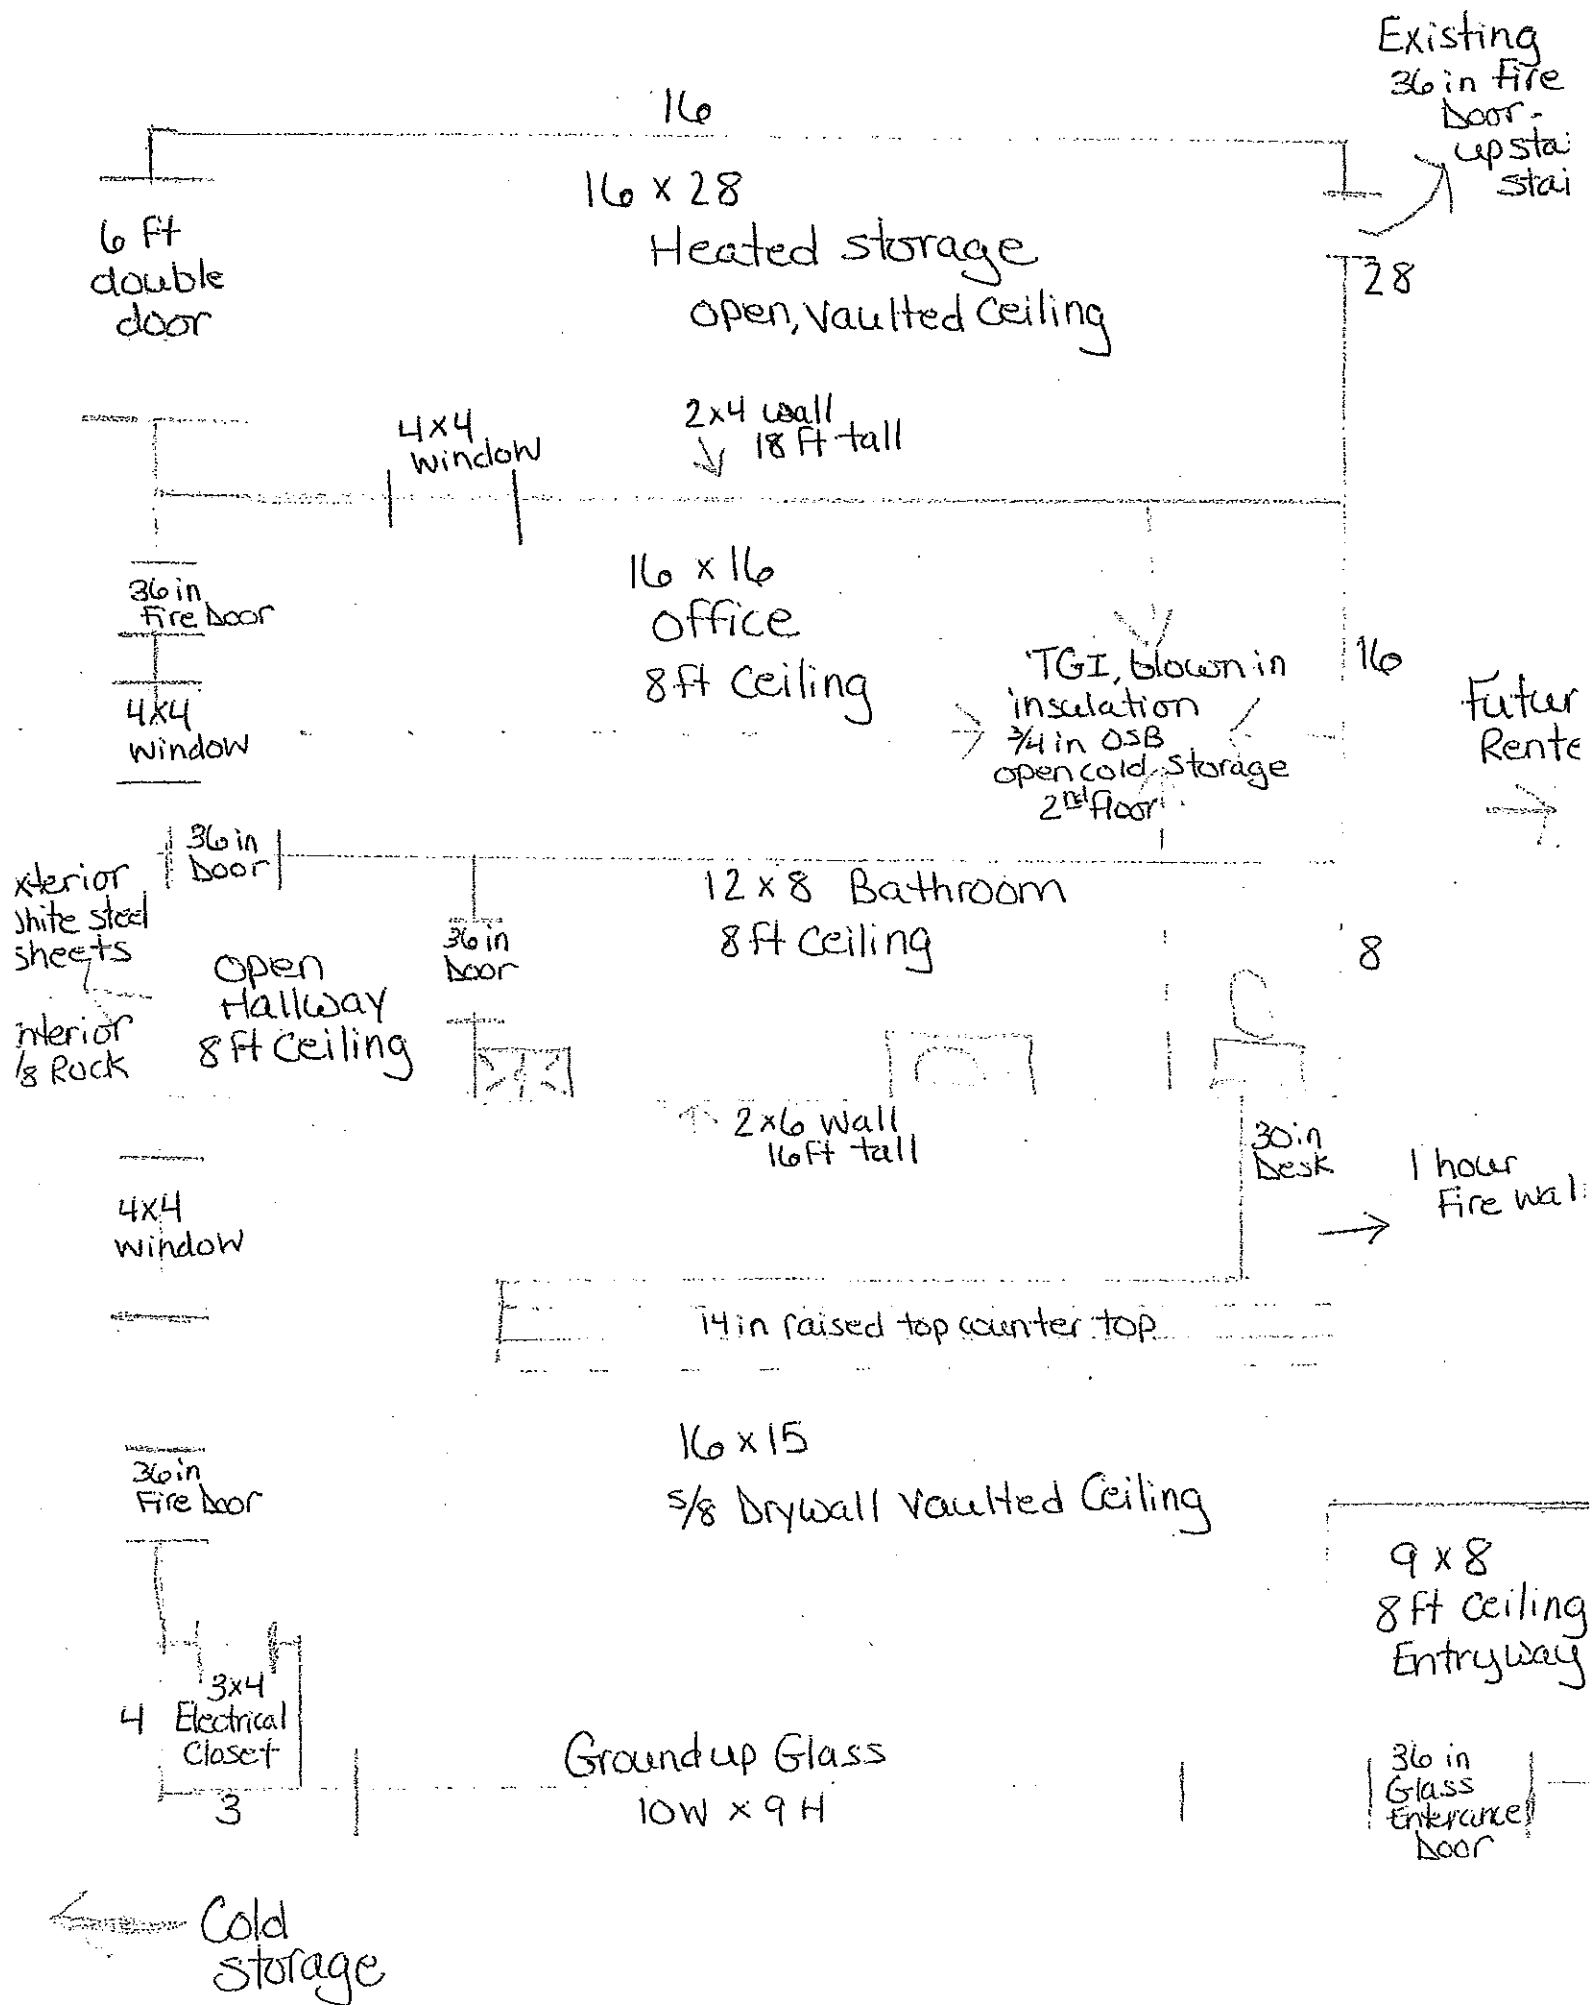 Existing
36 in Fire
Door -
16
16 x 28
Heated storage
open, vaulted ceiling
6 ft
double
door
28
4x4
window
2x4 wall
18 ft tall
36 in
Fire Door
16 x 16
office
8 ft ceiling
TGI, blown in
insulation
3/4 in OSB
open cold storage
2nd floor
16
4x4
window
36 in
Door
sheets
12 x 8 Bathroom
8 ft ceiling
36 in
Door
8
Open
Hallway
8 ft ceiling
Rock
2x6 wall
16 ft tall
30 in
Desk
1 hour
Fire
4x4
window
14 in raised top counter top
36 in
Fire Door
16 x 15
5/8 Drywall Vaulted Ceiling
9 x 8
8 ft ceiling
Entryway
3x4
Electrical
Closet
4
3
Ground up Glass
10W x 9H
36 in
Glass
Enterance
Door
Cold
storage